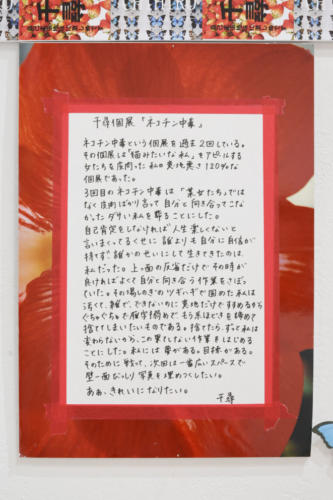 千尋
千尋個展「ネコチン中毒」
ネコチン中毒という個展を過去2回している。
その個展は「猫みたいな私」をアピールする
女たちを皮肉った私の意地悪さ120%な
個展であった。
3回目のネコチン中毒は「某女たち」では
なく皮肉ばかり言って自分と向き合ってこな
かったダサい私を葬ることにした。
自己肯定をしなければ人生楽しくないと
言いまくってるくせに誰よりも自分に自信が
持てず誰かのせいにして生きてきたのは、
私だった。上っ面の反省だけでその時が
良ければよくて自分と向き合う作業をさぼっ
ていた。その場しのぎのツギハギで固めた私は
汚くて、雑で、できないのに意地だけですすめるから
ぐちゃぐちゃで複雑骨折で、もう糸ほどきを諦めて
捨ててしまいたいものである。捨てたら、ずっと私は
変わらないから、この果てしない作業をはじめる
ことにした。私には夢がある。目標がある。
そのために戦って、次回は一番広いスペースで
壁一面びっしり写真を埋めつくしたい。
ああ、きれいになりたい。
千尋